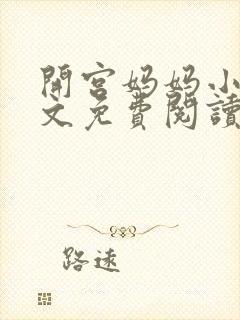 開宮妈妈小
文免費閱讀
路遠